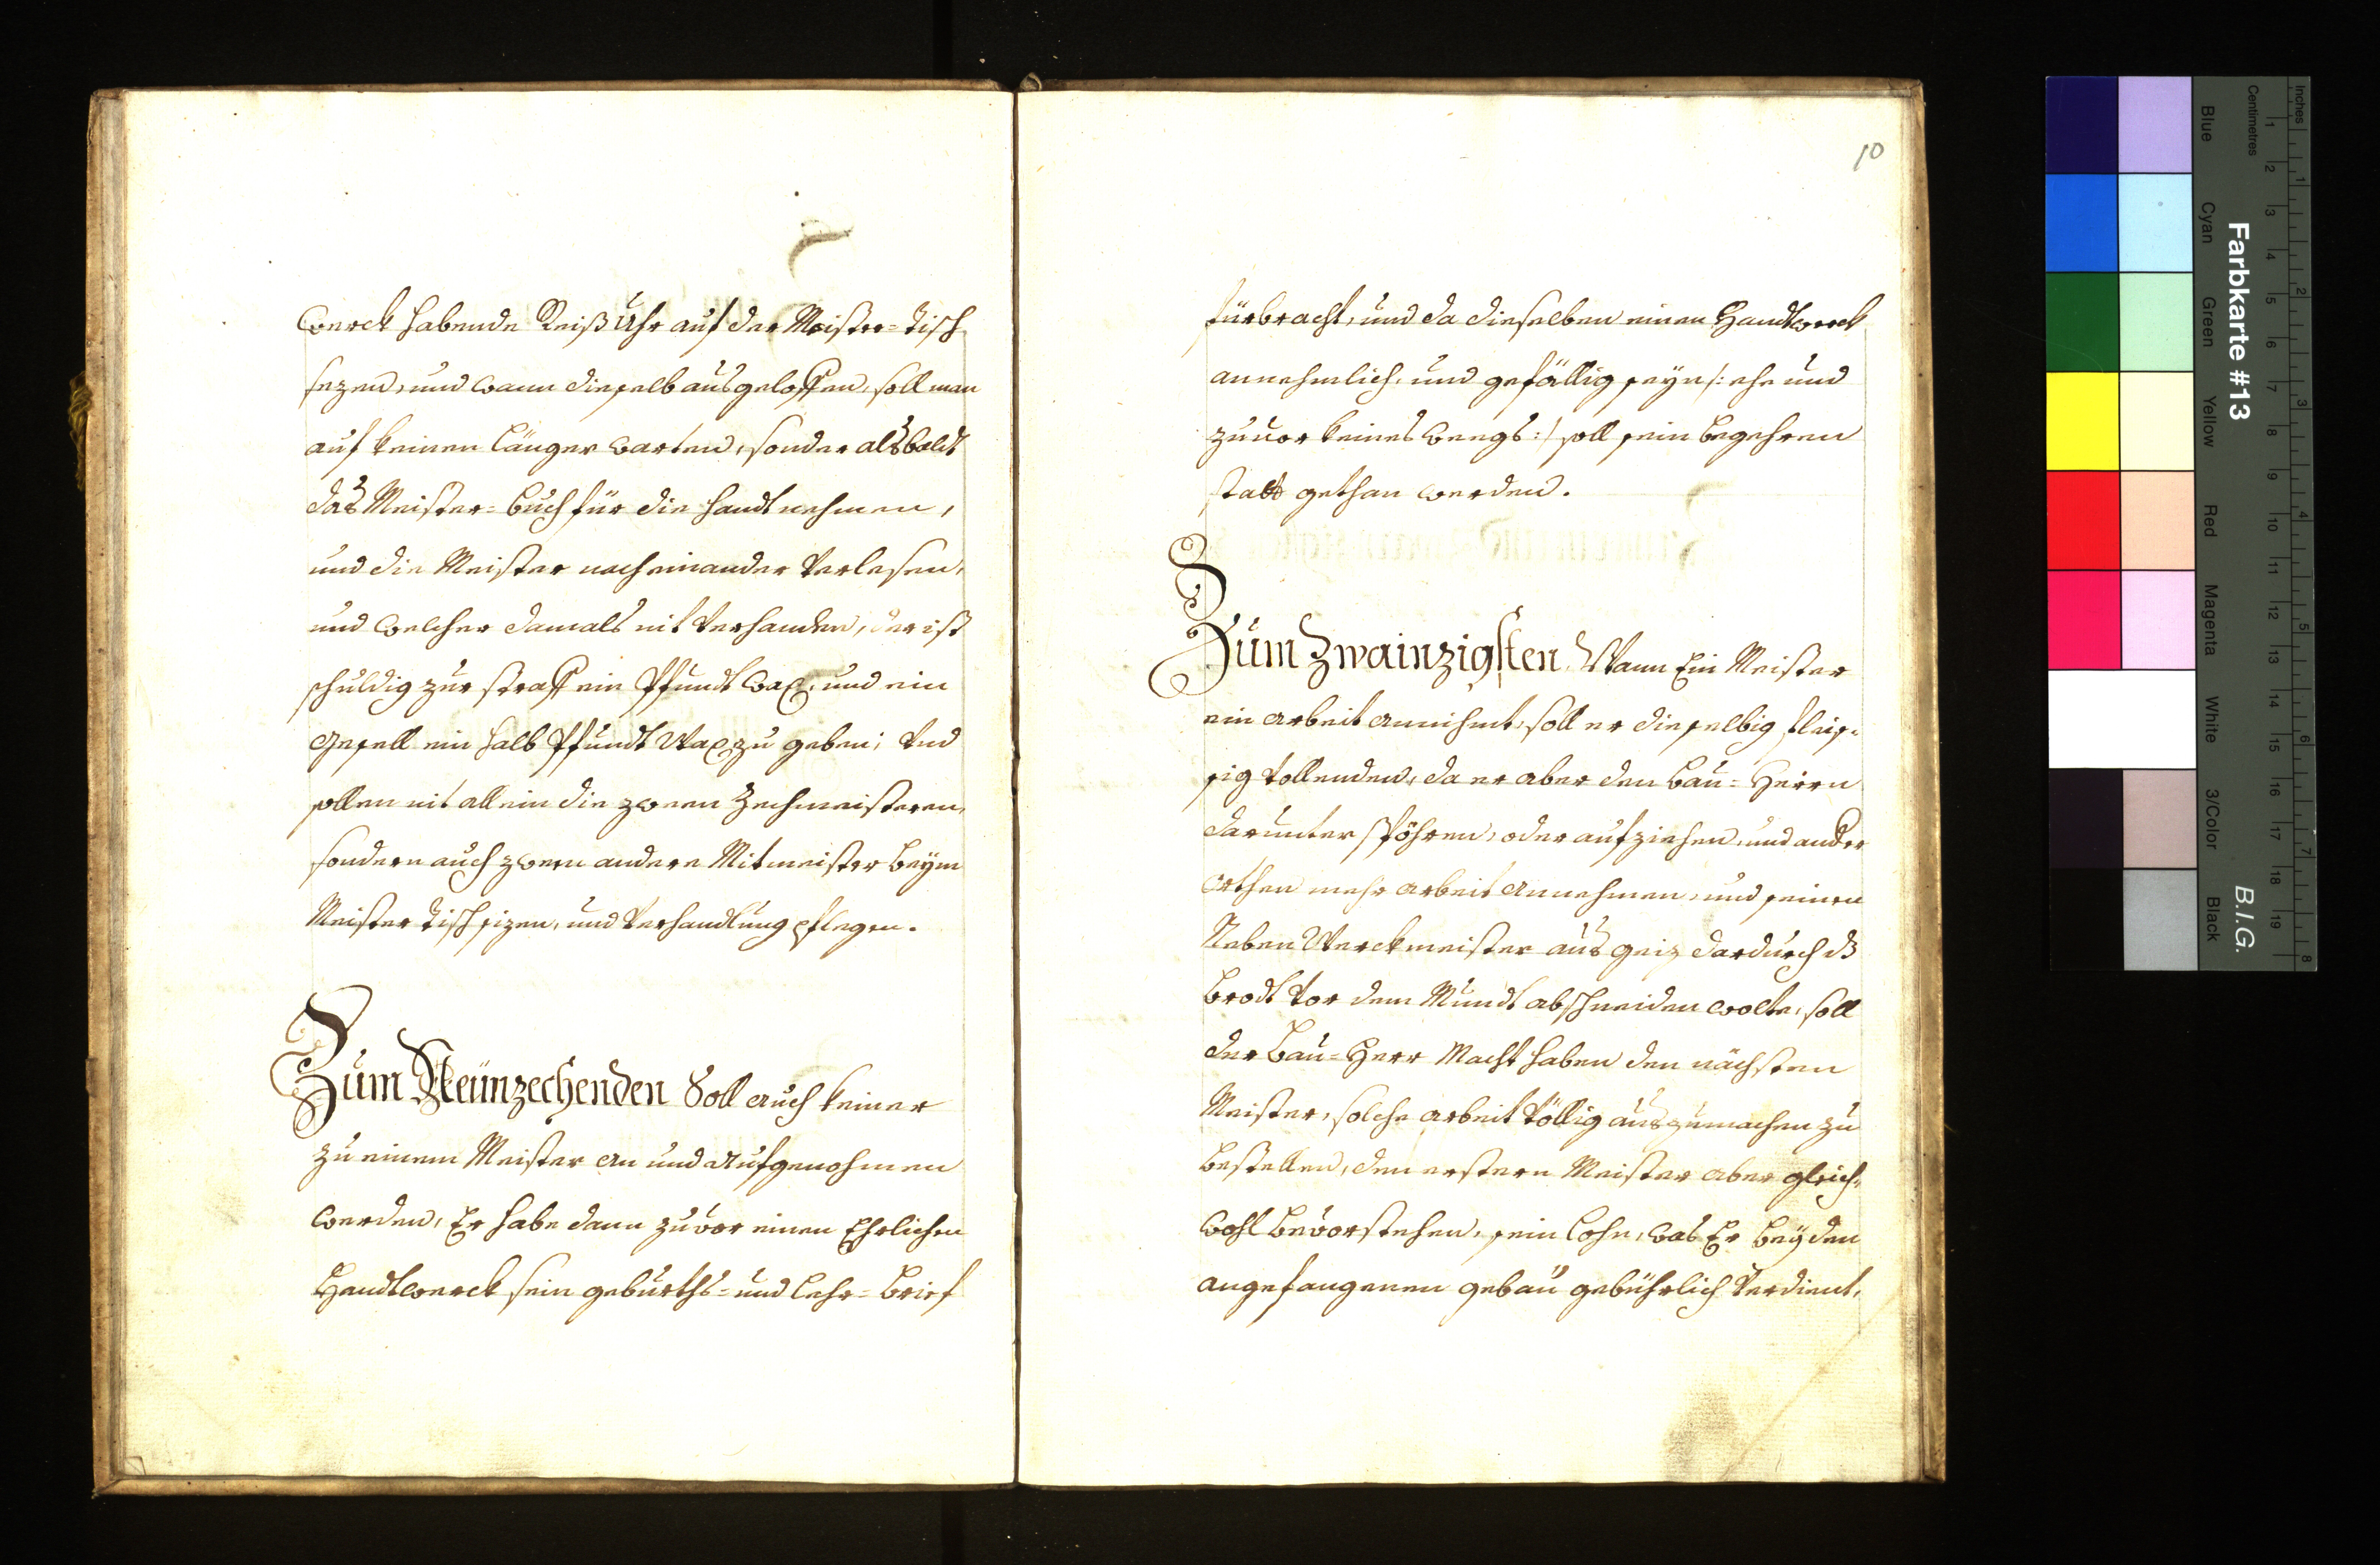 werck habende Reiß Uhr auf der Meister=Tisch
sezen, und wann dieselb ausgeloffen, soll man
auf keinen länger warten, sonder alsbaldt
das Meister=buch für die handt nehmen,
und die Meister nach einander Verlesen,
und welcher damals nit Verhanden, der ist
schuldig zur straff ein Pfundt wax, und ein
gesell ein halb Pfundt Wax zu geben; Vnd
sollen nit allein die zween Zechmeisteren,
sondern auch zween andere Mitmeister beÿm
Meister Tisch sizen, und Verhandlung pflegen.
Zum Neünzechenden Soll auch keiner
zu einem Meister an und aufgenohmen
werden, Er habe dann zuvor einen Ehrlichen
Handtwerck sein geburths= und lehr=brief
10
fürbracht, und da dieselben einen Handtwerck
annehmlich, und gefällig seyn /: ehe und
zuvor keines weegs :/ soll sein begehren
statt gethan werden.
Zum Zwainzigsten, Wann Ein Meister
ein arbeit annihmt, soll er dieselbig fleis=
sig Vollenden, da er aber den bau=Herrn
darunter spöhren, oder aufziehen, und ander
orthen mehr arbeit annehmen, und seinen
Neben Werckmeister aus geiz dardurch dz
brodt Vor dem Mundt abschneiden wolte, soll
der bau=Herr Macht haben den nächsten
Meister, solche arbeit Völlig auszumachen zu
bestellen, den erstern Meister aber gleich=
wohl bevorstehen, sein lohn, was Er beÿ den
angefangenen gebau gebührlich Verdient,
Farbkarte #13
B.I.G.
Inches
Centimetres
1 2 3 4 5 6 7 8
1 2 3 4 5 6 7 8 9 10 11 12 13 14 15 16 17 18 19
Blue
Cyan
Green
Yellow
Red
Magenta
White
3/Color
Black